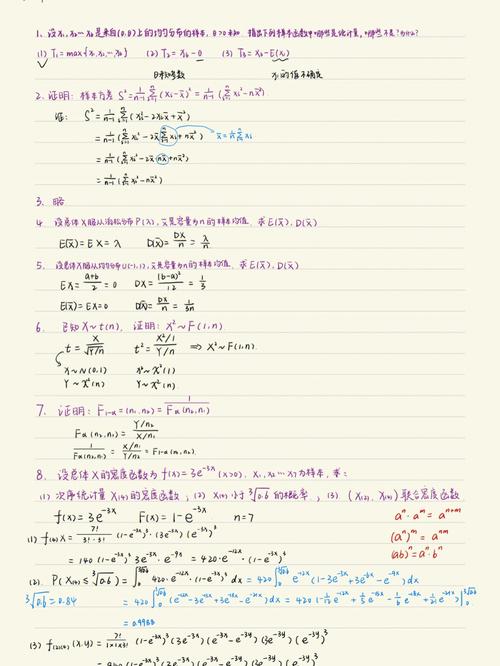 1、设x₁,x₂…x₆是来自(0,θ)上的均匀分布的样本,θ>0未知 指出下列样本函数中哪些是统计量,哪些不是?为什么?
(1) T₁=max{x₁,x₂…x₆} (2) T₂=x₆-θ (3) T₃=x₆-E(x₁)
θ未知
2.证明:样本方差 S²=1/(n-1) Σ(i=1,n)(xᵢ-x̄)²=1/(n-1)(Σ(i=1,n)xᵢ²-nx̄²)
证: S²=1/(n-1) Σ(i=1,n)(xᵢ²-2xᵢx̄+x̄²)
=1/(n-1)(Σ(i=1,n)xᵢ²-2x̄Σ(i=1,n)xᵢ+nx̄²) x̄=1/n Σ(i=1,n)xᵢ
=1/(n-1)(Σ(i=1,n)xᵢ²-2x̄·nx̄+nx̄²)
=1/(n-1)(Σ(i=1,n)xᵢ²-nx̄²)
3. 略
4. 设总体X服从泊松分布P(λ),x̄是容量为n的样本均值,求E(x̄),D(x̄)
E(x̄)=EX=λ D(x̄)=DX/n=λ/n
5、设总体X服从均匀分布U(-1,1),x̄是容量为n的样本均值,求E(x̄),D(x̄)
EX=(a+b)/2=0 DX=(b-a)²/12=1/3
E(x̄)=EX=0 D(x̄)=DX/n=1/3n
6、已知X~t(n),证明:X²~F(1,n)
t=X/√(Y/n) t²=(X²/1)/(Y/n) ⇒ X²~F(1,n)
X~N(0,1) X²~X²(1)
Y~X²(n) Y~X²(n)
7、证明:F₁₋α=(n₁,n₂)=1/Fα(n₂,n₁)
Fα(n₂,n₁)=(Y/n₂)/(X/n₁)
1/Fα(n₂,n₁)=(X/n₁)/(Y/n₂)=F₁₋α(n₁,n₂)
8、设总体X的密度函数为f(x)=3e⁻³ˣ(x>0),x₁,x₂…x₇为样本,求:
(1) 次序统计量X₍₄₎的密度函数;(2) X₍₄₎小于³√0.6的概率;(3) (X₍₂₎,X₍₄₎)联合密度函数
f(x)=3e⁻³ˣ F(x)=1-e⁻³ˣ n=7 aⁿ·aᵐ=aⁿ⁺ᵐ
(1) f₍₄₎(x)=7!/(3!·3!)(1-e⁻³ˣ)³·(3e⁻³ˣ)(e⁻³ˣ)³ (aⁿ)ᵐ=aⁿᵐ
=140(1-e⁻³ˣ)³3e⁻³ˣ·e⁻⁹ˣ=420·e⁻¹²ˣ·(1-e⁻³ˣ)³ (ab)ⁿ=aⁿ·bⁿ
(2). P(X₍₄₎≤³√0.6)=∫₀^(³√0.6) 420·e⁻¹²ˣ·(1-e⁻³ˣ)³dx=420∫₀^(³√0.6) e⁻¹²ˣ(1-3e⁻³ˣ+3e⁻⁶ˣ-e⁻⁹ˣ)dx
³√0.6=0.84 =420∫₀^(³√0.6)(e⁻¹²ˣ-3e⁻¹⁵ˣ+3e⁻¹⁸ˣ-e⁻²¹ˣ)dx=420(-1/12 e⁻¹²ˣ+1/5 e⁻¹⁵ˣ-1/6 e⁻¹⁸ˣ+1/21 e⁻²¹ˣ)|₀^(³√0.6)
(3) f₍₂₎₍₄₎(x,y)=7!/(1×1×3!)(1-e⁻³ˣ)(3e⁻³ˣ)(e⁻³ˣ-e⁻³ʸ)(3e⁻³ʸ)(e⁻³ʸ)³